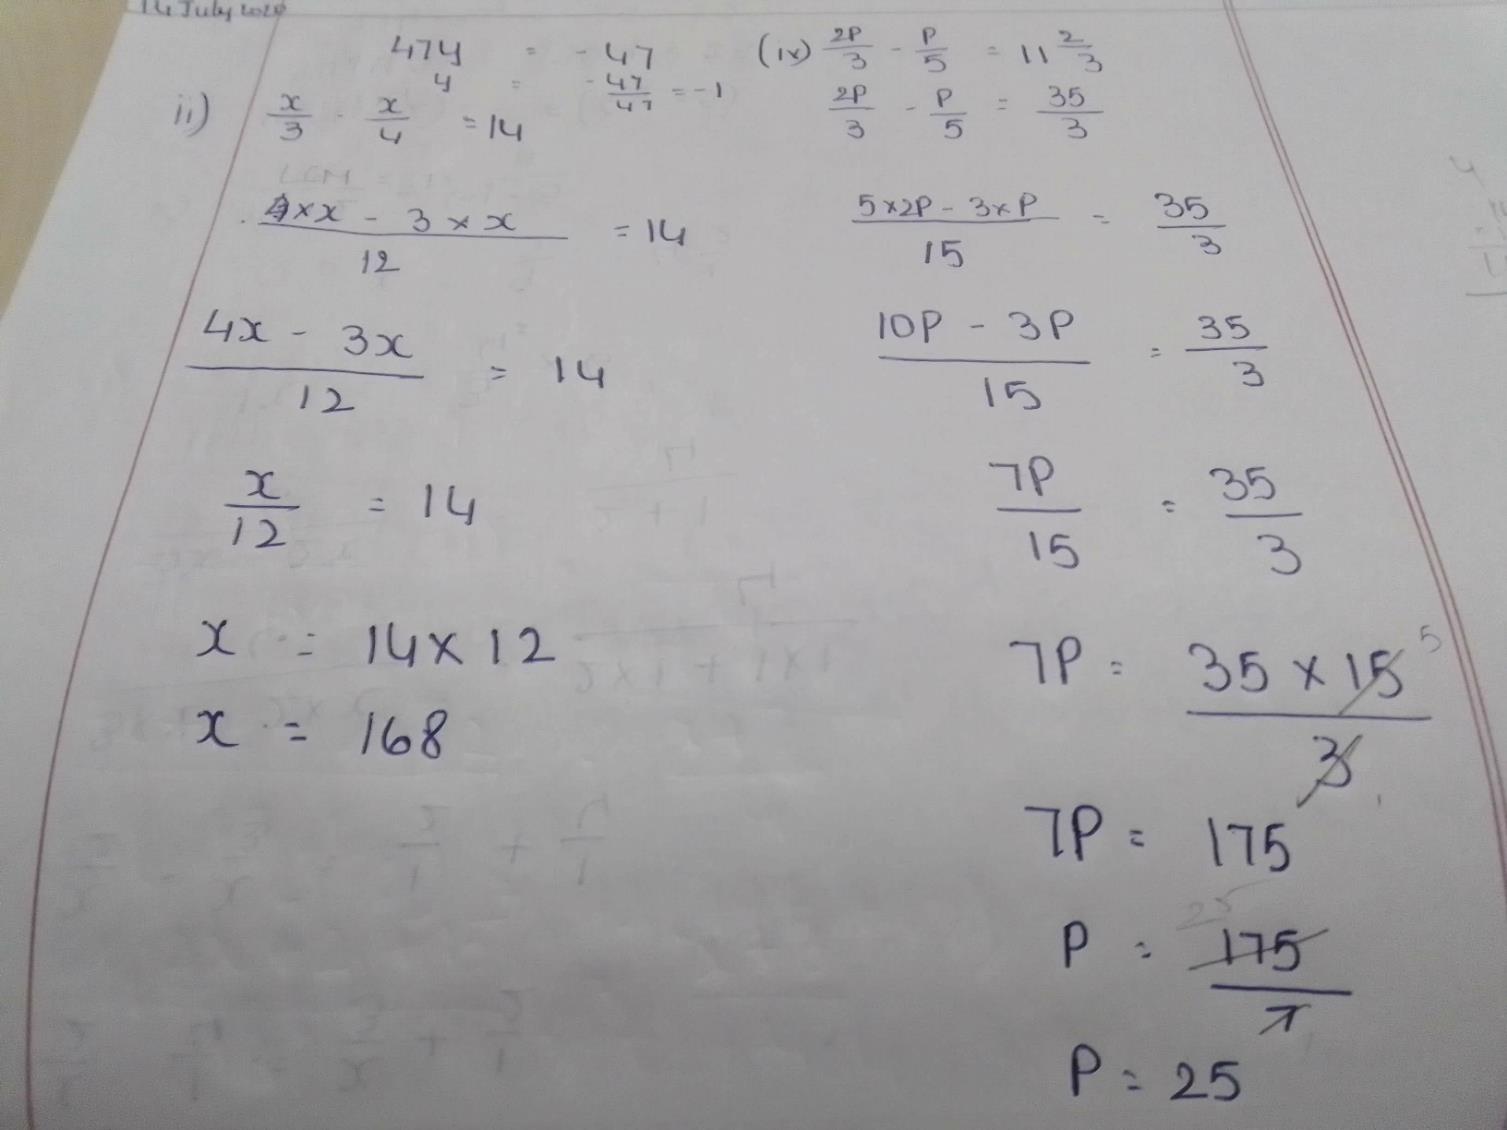 14 July 2020
47y = -47
y = -47/47 = -1
ii) x/3 - x/4 = 14
4×x - 3×x / 12 = 14
4x - 3x / 12 = 14
x/12 = 14
x = 14×12
x = 168
(iv) 2P/3 - P/5 = 11 2/3
2P/3 - P/5 = 35/3
5×2P - 3×P / 15 = 35/3
10P - 3P / 15 = 35/3
7P/15 = 35/3
7P = 35 × 15 5 / 3
7P = 175
25
P = 175/7
P = 25